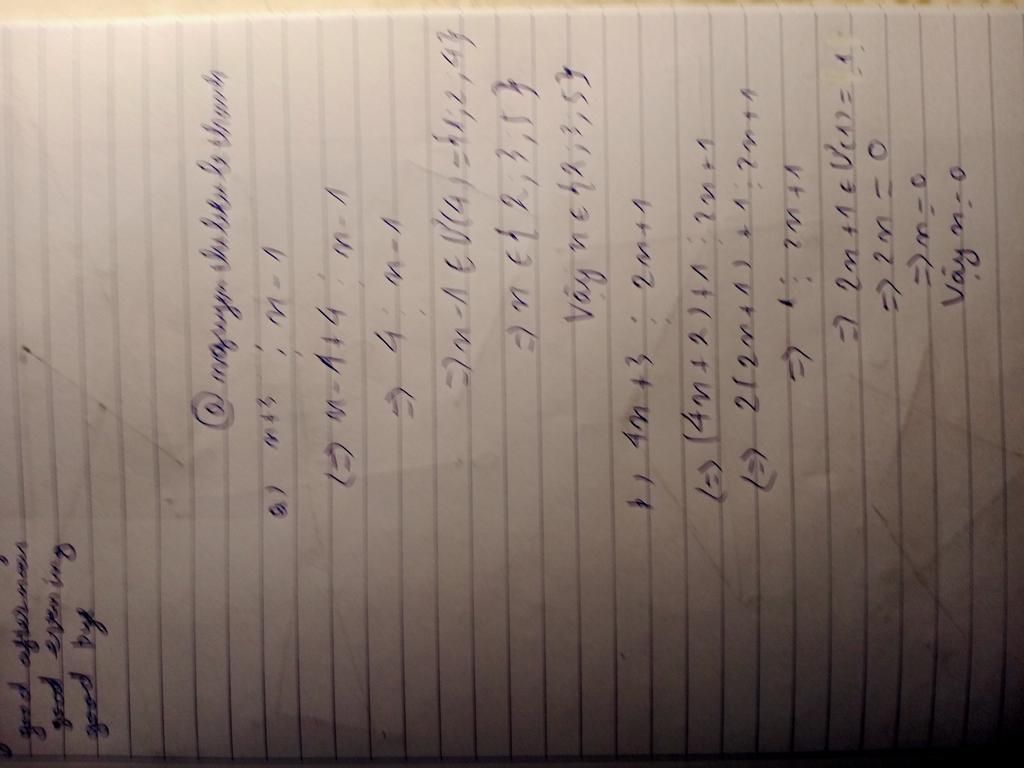 good afternoon
good evening
good bye
a) n+3 ⋮ n-1
(=) n-1+4 ⋮ n-1
=) 4 ⋮ n-1
=) n-1 ∈ Ư(4) = {1,2,4}
=) n ∈ { 2 ; 3 ; 5 }
Vậy n ∈ { 2 ; 3 ; 5 }
b) 4n+3 ⋮ 2n+1
(=) (4n+2)+1 ⋮ 2n+1
(=) 2(2n+1)+1 ⋮ 2n+1
=) 1 ⋮ 2n+1
=) 2n+1 ∈ Ư(1) = 1
=) 2n = 0
=) n = 0
Vậy n = 0